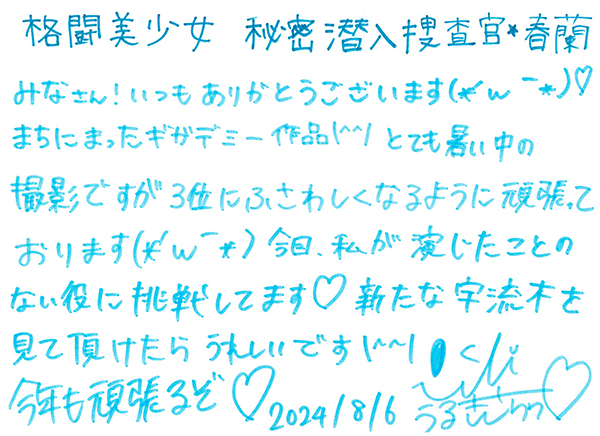 格闘美少女 秘密潜入捜査官*春蘭
みなさん!いつもありがとうございます(*´w｀*)♡
まちにまったギガデミー作品!^^! とても暑い中の
撮影ですが3位にふさわしくなるように頑張って
おります(*´w｀*) 今日、私が演じたことの
ない役に挑戦してます♡ 新たな宇流木を
見て頂けたらうれしいです!^^!
今年も頑張るぞ♡ 2024/8/6 うるきさらら♡